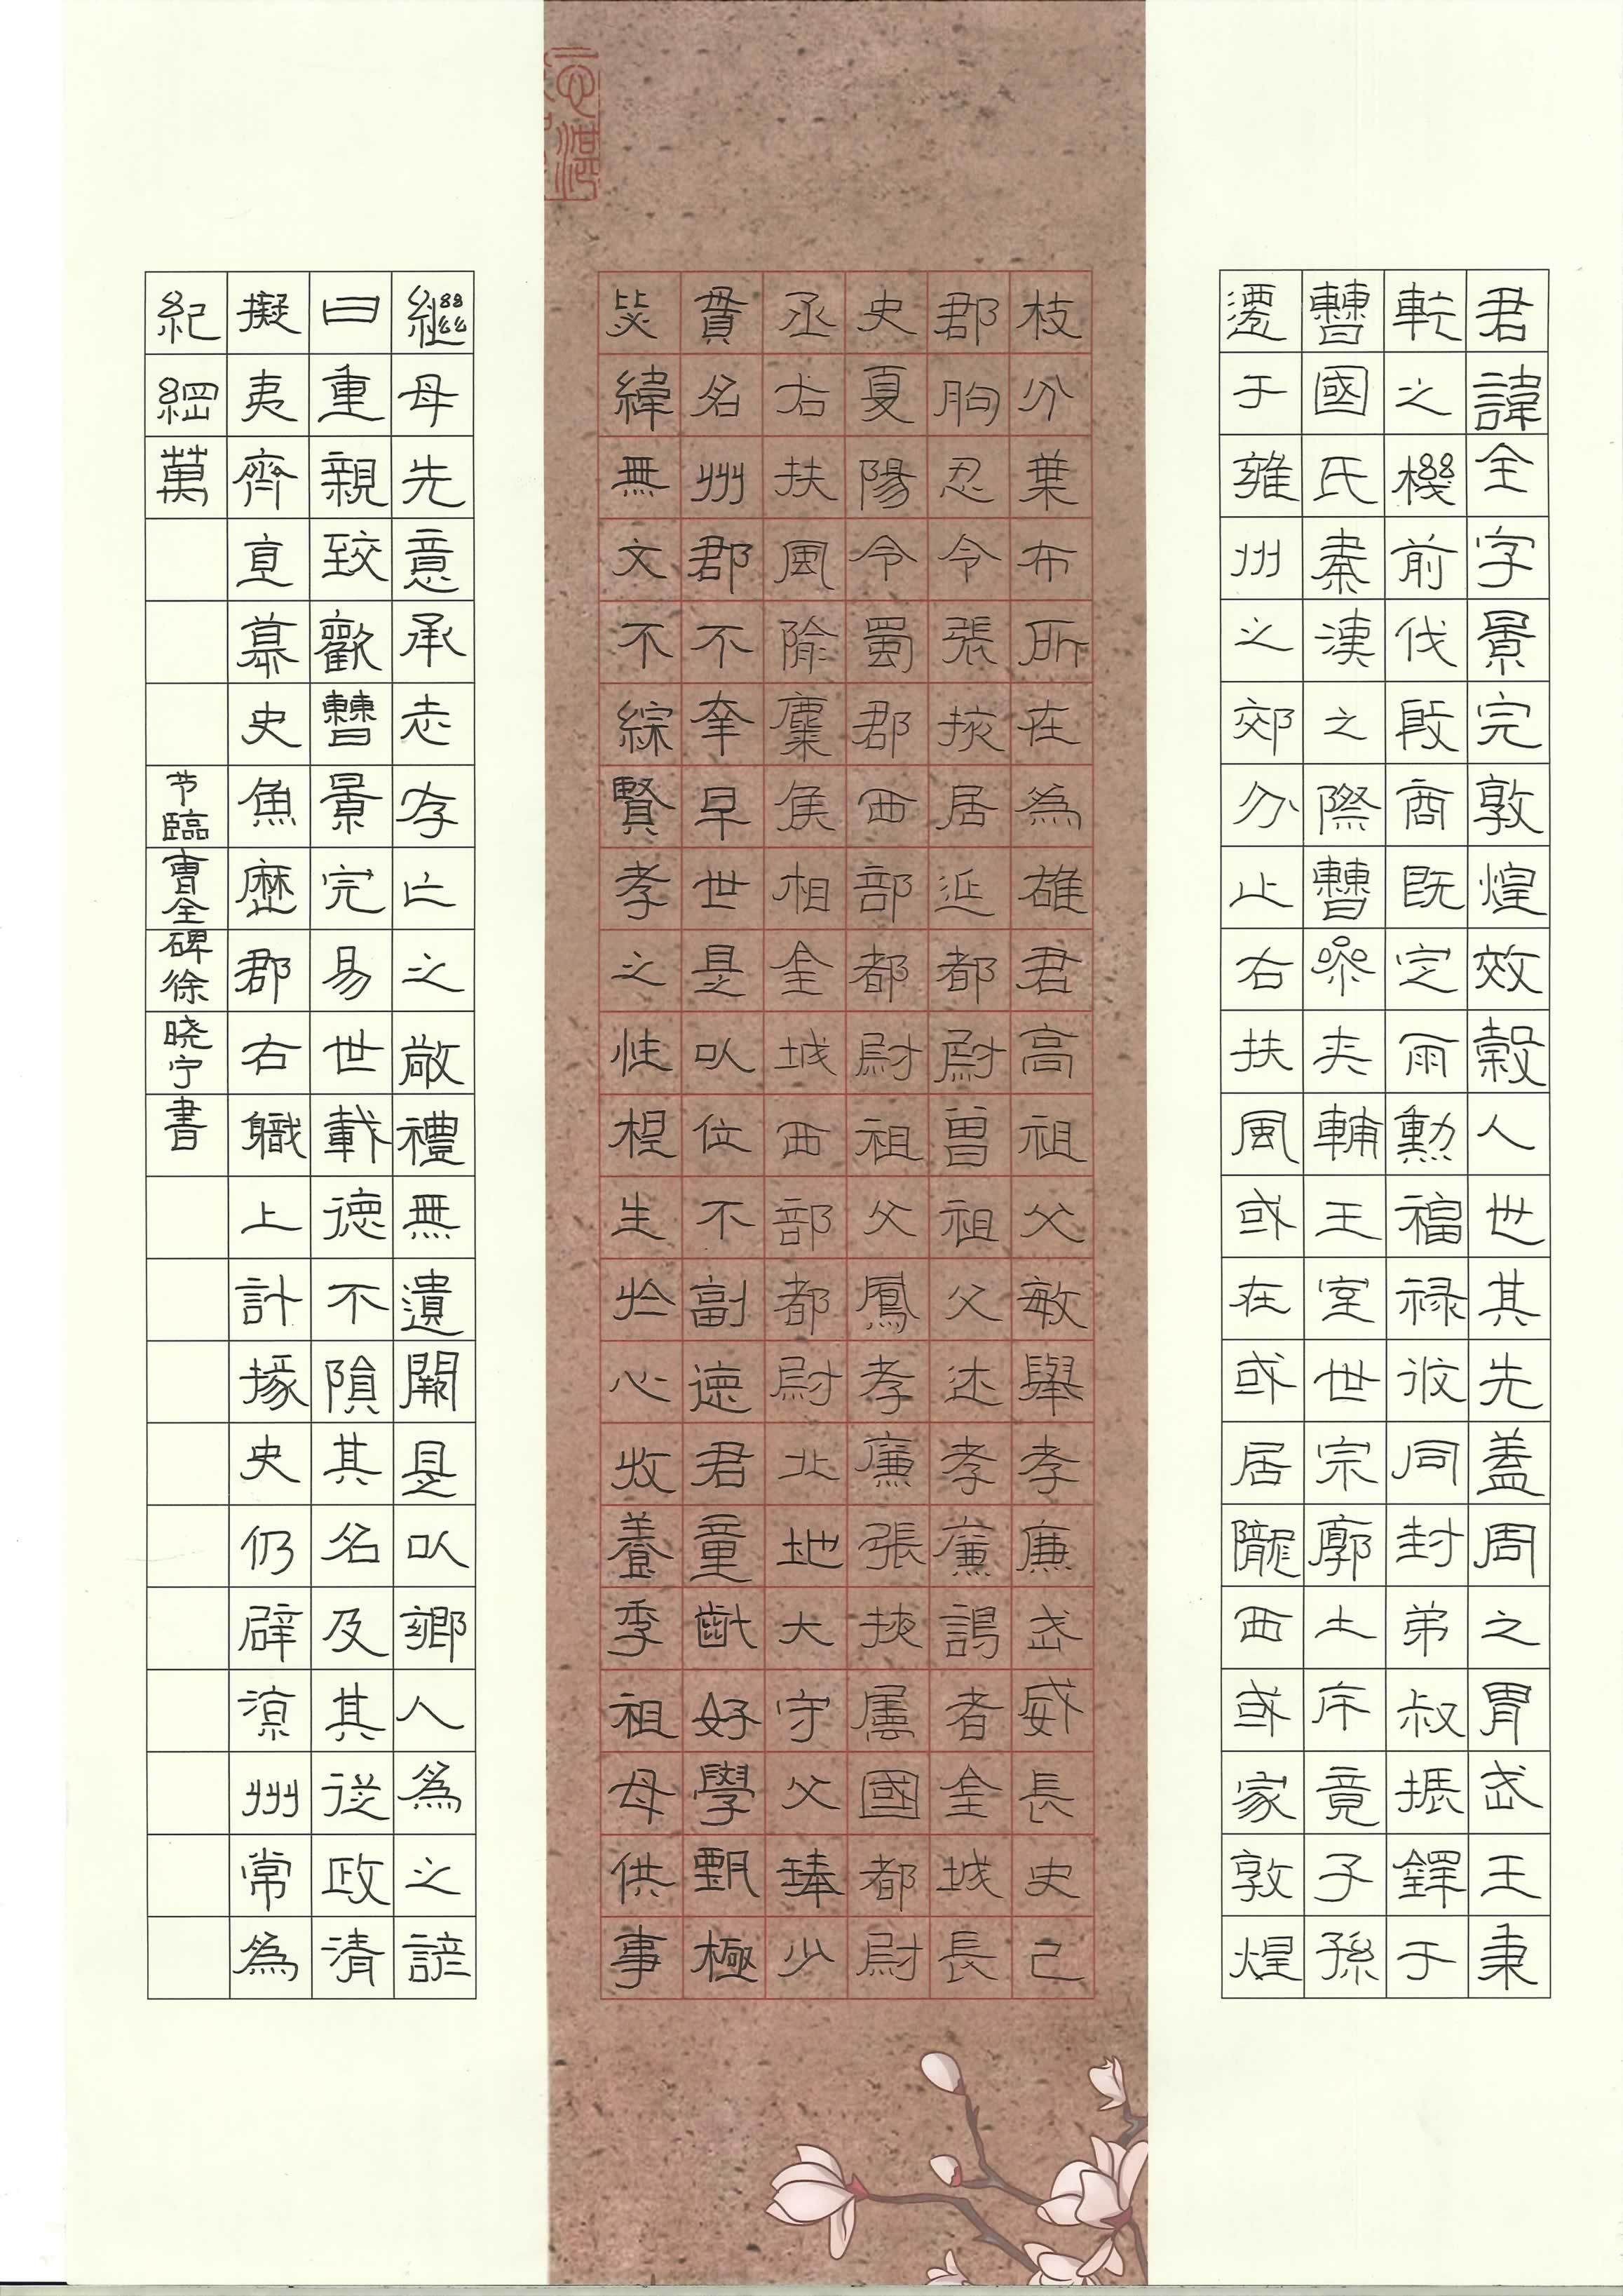 君諱全字景完敦煌效穀人世其先蓋周之胄武王秉
乾之機前伐殷商既定爾勳福祿攸同封弟叔振鐸于
曹國氏秦漢之際曹參夾輔王室世宗廓土斥竟子孫
遷于雍州之郊分止右扶風或在或居隴西或家敦煌
枝分葉布所在為雄君高祖父敏舉孝廉武威長史巳
郡朐忍令張掖居延都尉曾祖父述孝廉謁者金城長
史夏陽令蜀郡西部都尉祖父鳳孝廉張掖屬國都尉
丞右扶風隃麋侯相金城西部都尉北地大守父琫少
貫名州郡不幸早世是以位不副德君童齔好學甄極
毖緯無文不綜賢孝之性根生於心收養季祖母供事
繼母先意承志存亡之敬禮無遺闕是以鄉人為之諺
曰重親致歡曹景完易世載德不隕其名及其從政清
擬夷齊直慕史魚歷郡右職上計掾史仍辟涼州常為
紀綱萬
节臨曹全碑徐晓宁書